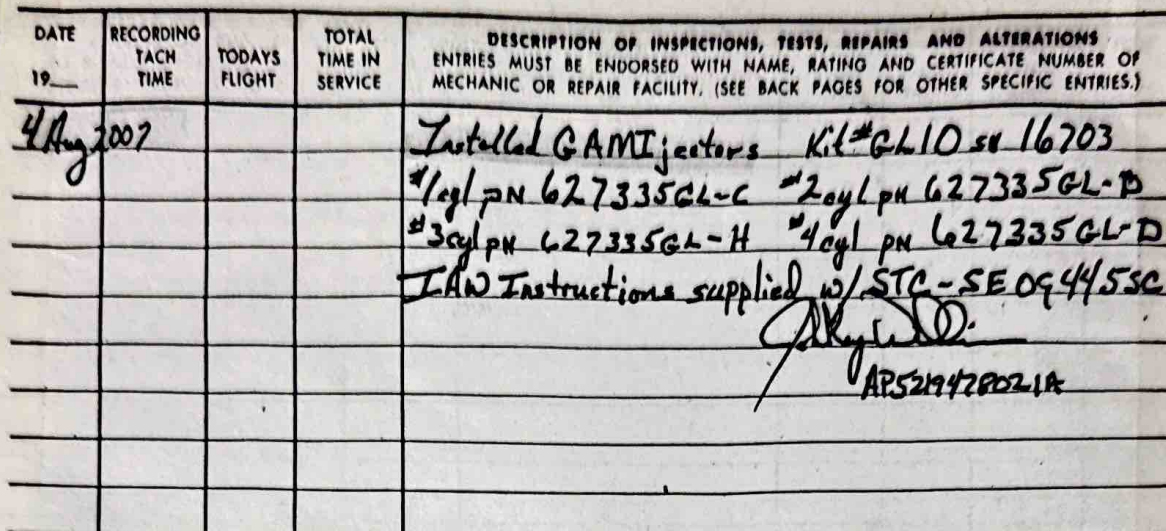 DATE
19__
RECORDING TACH TIME
TODAYS FLIGHT
TOTAL TIME IN SERVICE
DESCRIPTION OF INSPECTIONS, TESTS, REPAIRS AND ALTERATIONS
ENTRIES MUST BE ENDORSED WITH NAME, RATING AND CERTIFICATE NUMBER OF
MECHANIC OR REPAIR FACILITY. (SEE BACK PAGES FOR OTHER SPECIFIC ENTRIES.)
4 Aug 2007 Installed GAMIjectors Kit #GL10 SN 16703
#1cyl PN 627335GL-C #2cyl PN 627335GL-D
#3cyl PN 627335GL-H #4cyl PN 627335GL-D
IAW Instructions supplied w/ STC-SE09445SC